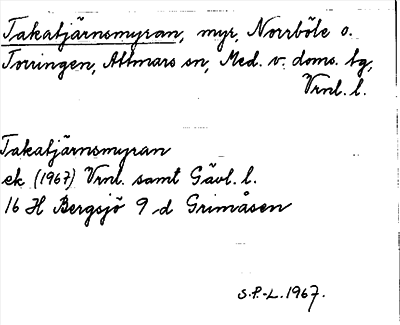 Takatjärnsmyran, myr, Norrböle o.
Torringen, Attmars sn, Med. v. doms. tg,
Vrnl. l.
Takatjärnsmyran
ek (1967) Vrnl. samt Gävl. l.
16 H Bergsjö 9 d Grimåsen
S.P.-L. 1967.